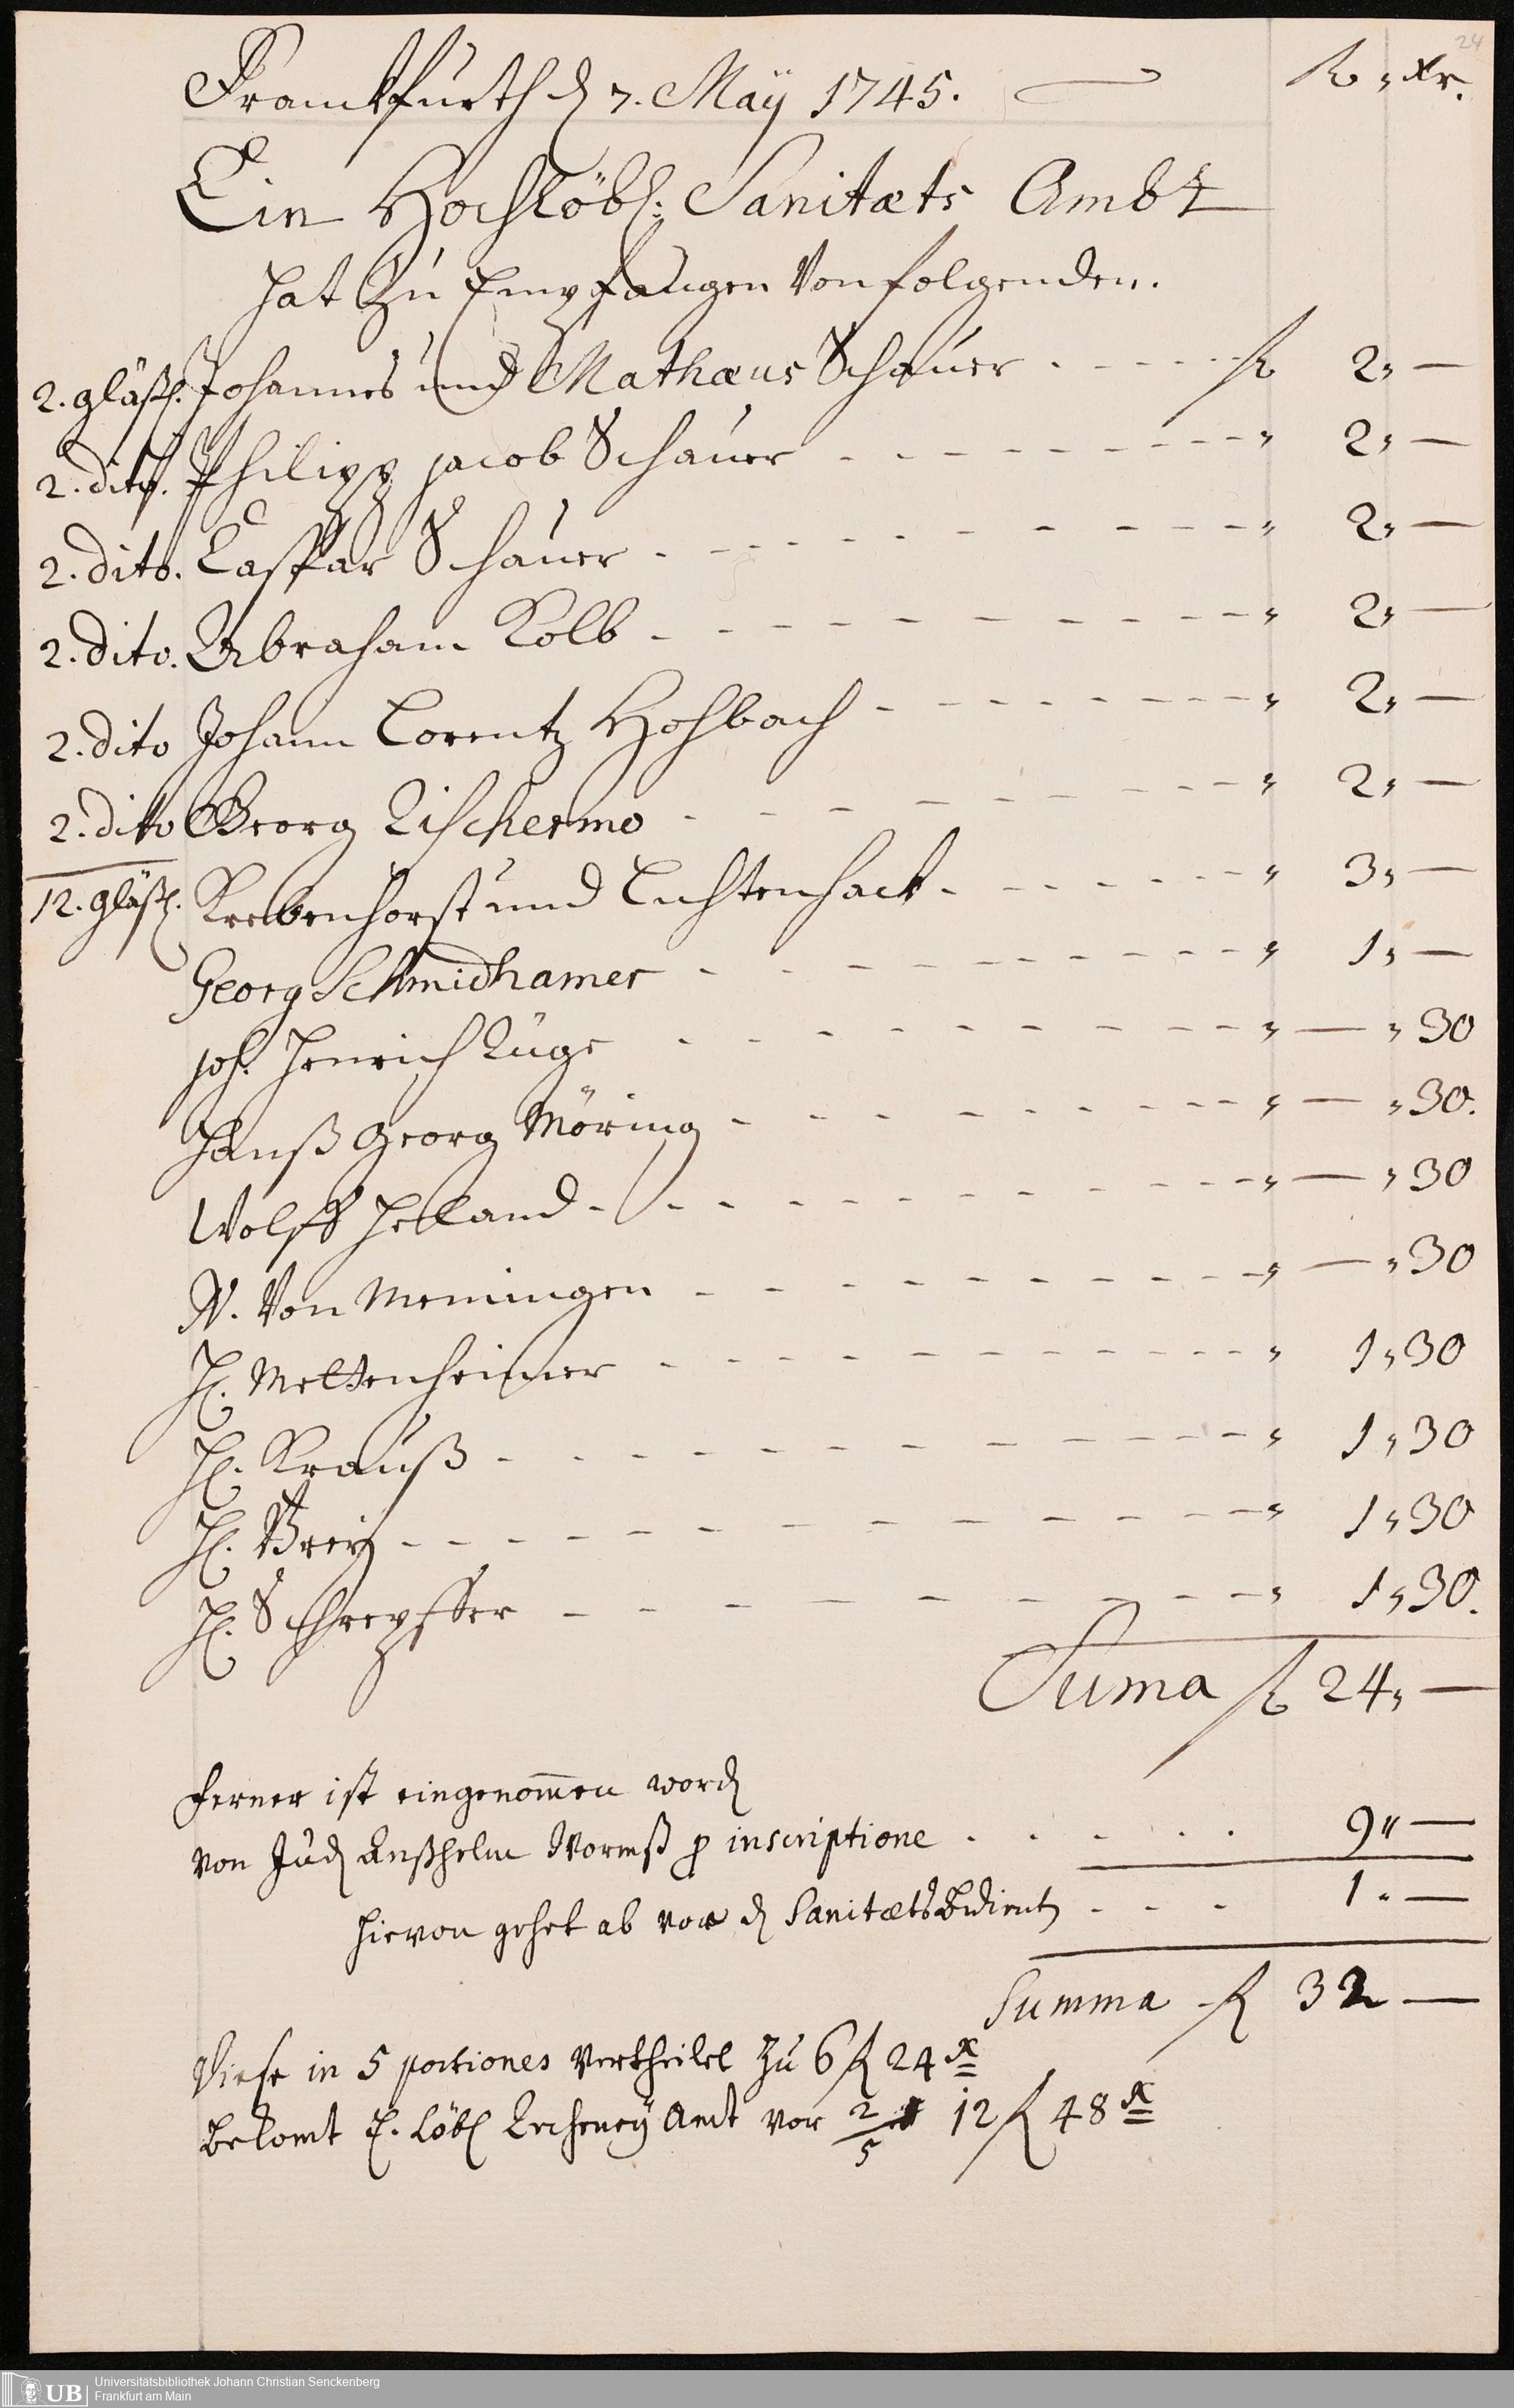 24
Franckfurth d 7. Maÿ 1745. fl " Xr.
Ein Hochlöbl: Sanitæts Ambt
hat Zu Empfangen Von folgenden.
2. gläßl. Johannes und Mathæus Schauer . - - - - fl 2 " —
2. dito. Philipp jacob Schauer - - - - - " 2 " —
2. dito. Caspar Schauer - - - - - " 2 " —
2. dito. Abraham Kolb - - - - - " 2 " —
2. dito Johann Lorentz Hohbach - - - - - " 2 " —
2. dito Georg - - - - - " 2 " —
12. gläßl. Krebenhorst und Lichtenhack - - - - - " 3 " —
Georg Schmidhamer - - - - - " 1 " —
joh. Henrich Luge - - - - - " — " 30
Hanß Georg Möring - - - - - " — " 30.
Wolff Helland - - - - - " — " 30
N. Von Meningen - - - - - " — " 30
H. Mettenheimer - - - - - " 1 " 30
H. Krauß - - - - - " 1 " 30
H. Breÿ - - - - - " 1 " 30
H. Schrepffer - - - - - " 1 " 30.
Suma fl 24 " —
ferner ist eingenom̅en word
von Jud Anßhelm Wormß p inscriptione . . . . . 9 " —
hievon gehet ab vor d Sanitæts Bedient - - - 1 " —
Summa fl 32 —
Diese in 5 portiones vertheilet Zu 6 fl 24 x
bekomt E. Löbl Recheneÿ Amt vor 2/5 12 fl 48 x
UB Universitätsbibliothek Johann Christian Senckenberg
Frankfurt am Main